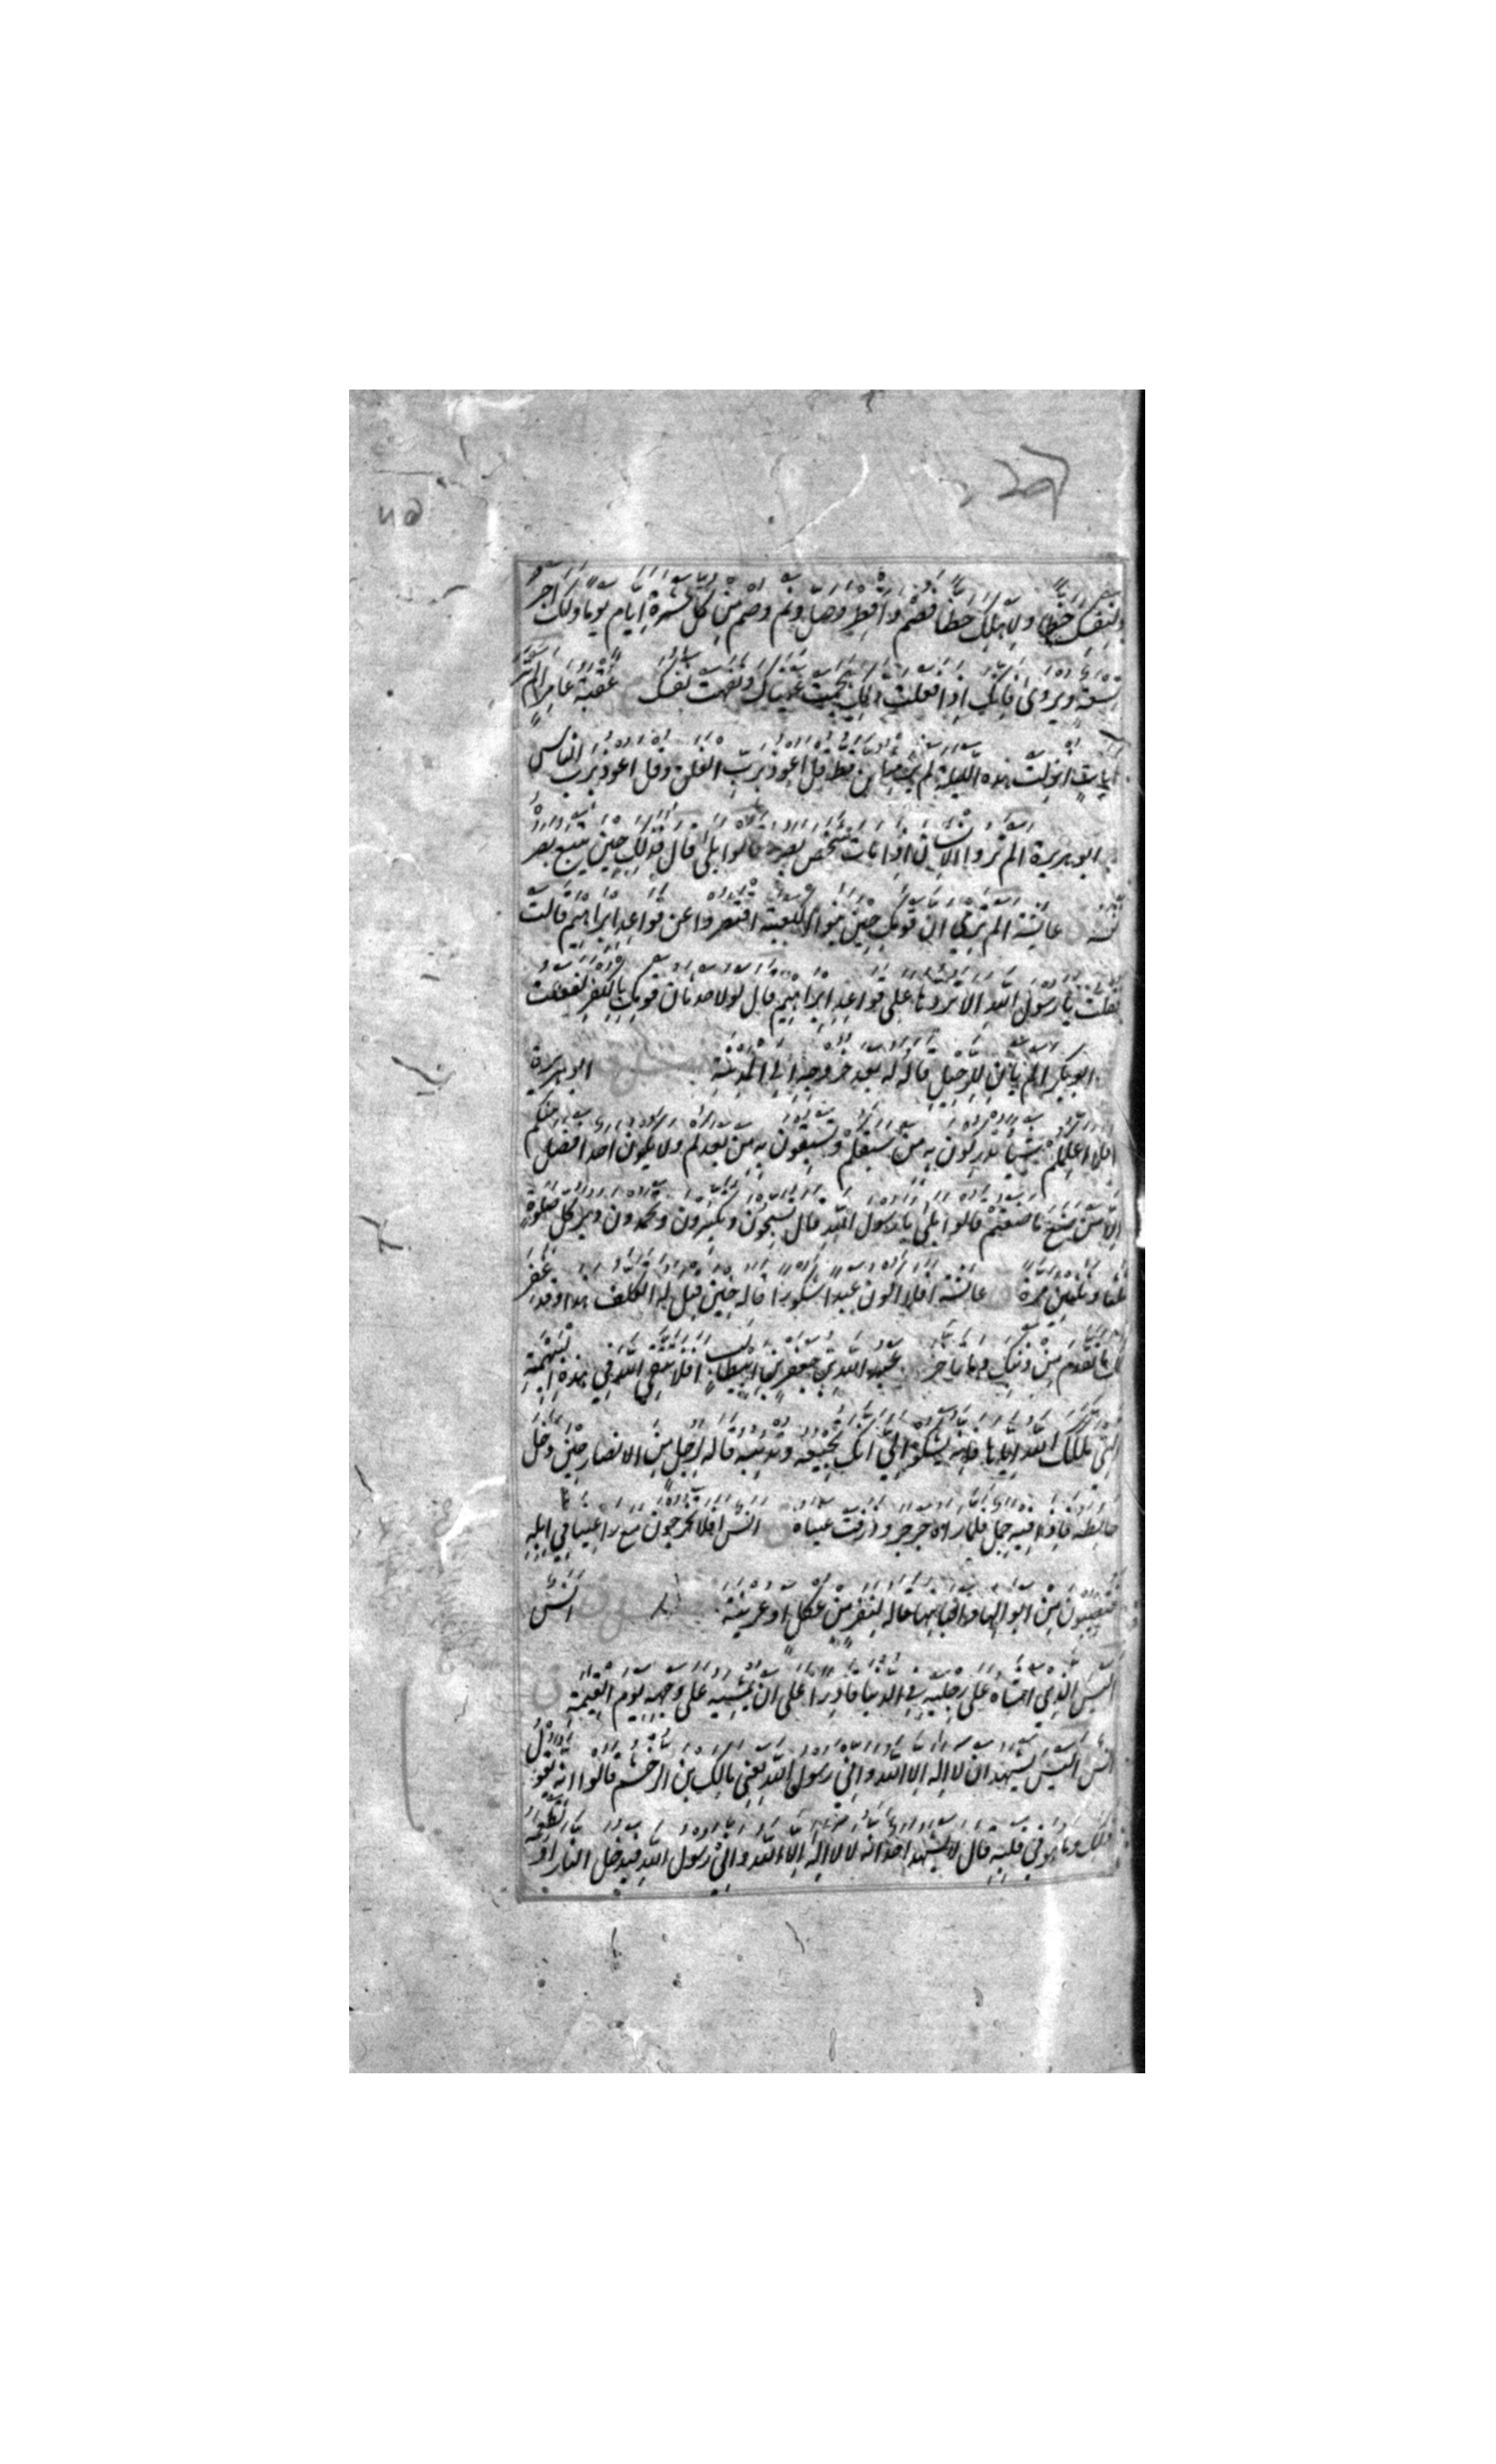 ولنفسك حظا ولاهلك حظا فصم وافطر وصل ونم وصم من كل عشرة ايام يوما ولك اجر
تسعة ويروى فانك اذا فعلت ذلك هجمت عيناك ونفهت نفسك عقبة عامر الم تر
ايات انزلت هذه الليلة لم ير مثلهن قط قل اعوذ برب الفلق وقل اعوذ برب الناس
ابو هريرة الم تروا الانسان اذا مات شخص بصره قالوا بلى قال فذلك حين يتبع بصره
نفسه عائشة الم تري ان قومك حين بنوا الكعبة اقتصروا عن قواعد ابراهيم قالت
فقلت يا رسول الله الا تردها على قواعد ابراهيم قال لولا حدثان قومك بالكفر لفعلت
ابو بكر الم يان للرحيل قاله له بعد خروجه الى المدينة ابو هريرة
افلا اعلمكم شيئا تدركون به من سبقكم وتسبقون به من بعدكم ولا يكون احد افضل منكم
الا من صنع ما صنعتم قالوا بلى يا رسول الله قال تسبحون وتكبرون وتحمدون دبر كل صلوة
ثلثا وثلثين مرة ق عائشة افلا اكون عبدا شكورا قاله حين قيل له اتكلف هذا وقد غفر
لك ما تقدم من ذنبك وما تاخر عبد الله بن جعفر بن ابيطالب افلا تتقي الله في هذه البهيمة
التي ملكك الله اياها فانه يشكو الي انك تجيعه وتدئبه قاله لرجل من الانصار حين دخل
حائطه فاذا فيه جمل فلما راه جرجر وذرفت عيناه ق انس افلا تخرجون مع راعينا في ابله
فتصيبون من ابوالها والبانها قاله لنفر من عكل او عرينة انس
اليس الذي امشاه على رجليه في الدنيا قادرا على ان يمشيه على وجهه يوم القيمة ق
انس اليس يشهد ان لا اله الا الله واني رسول الله يعني مالك بن الدخشم قالوا انه يقول
ذلك وما هو في قلبه قال لا يشهد احد انه لا اله الا الله واني رسول الله فيدخل النار او تطعمه